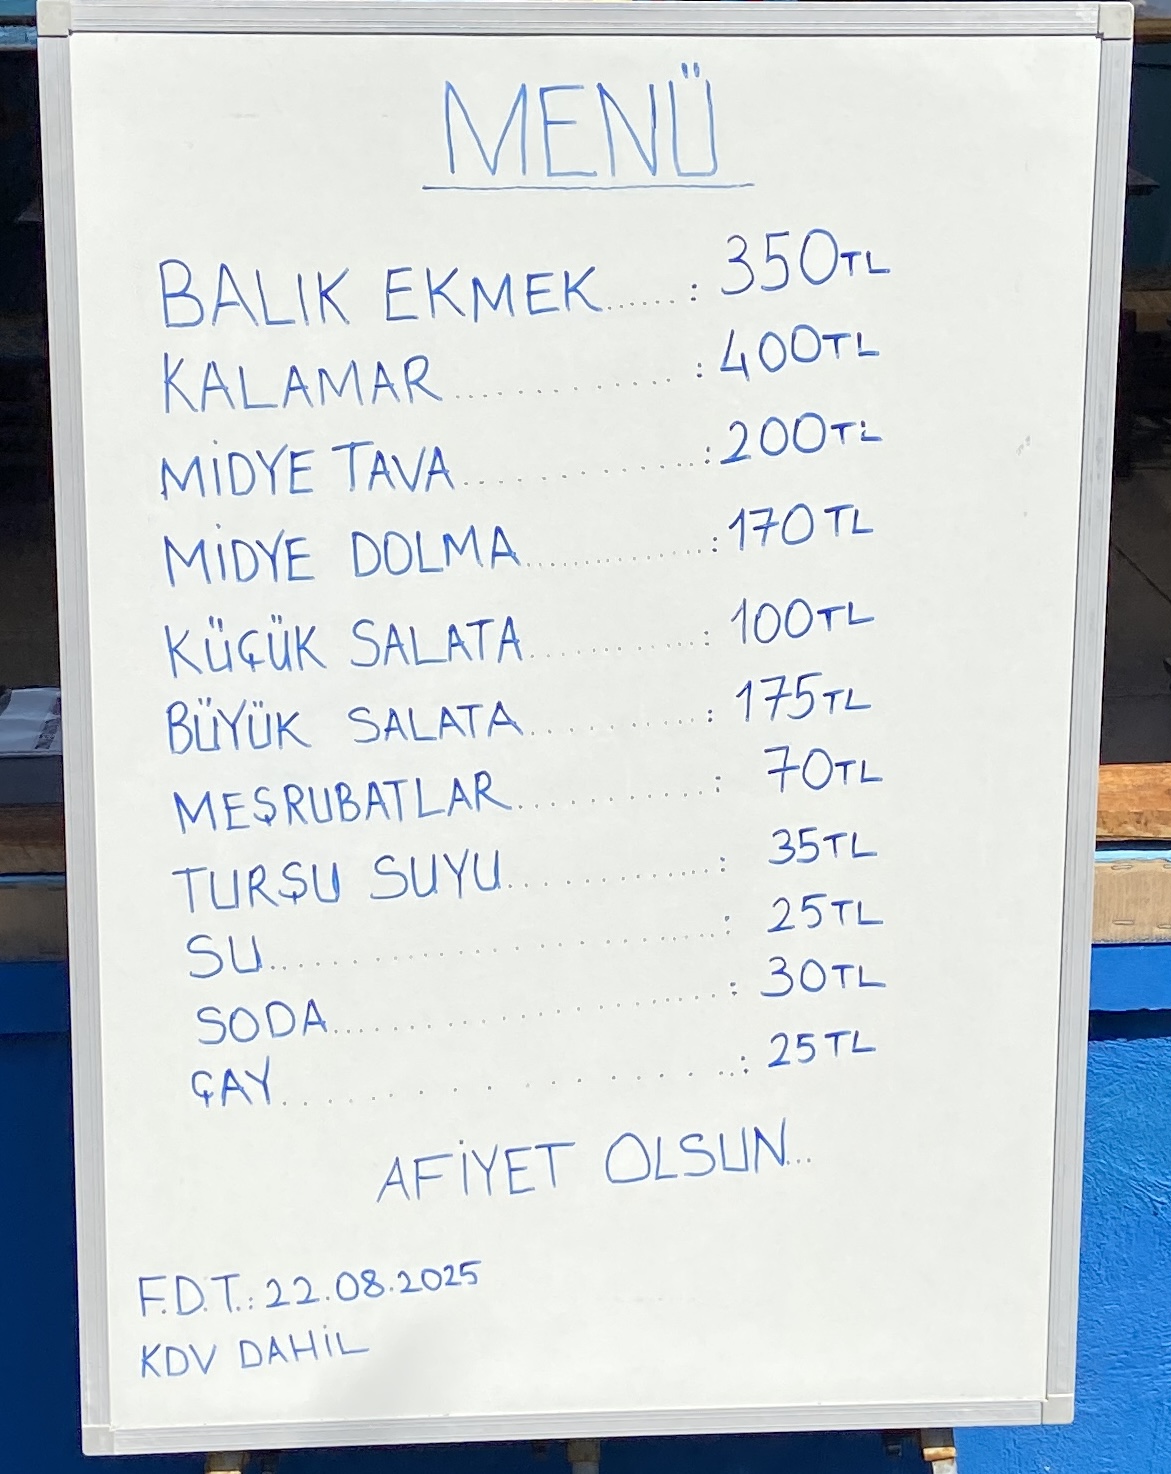 MENÜ
BALIK EKMEK......: 350TL
KALAMAR............: 400TL
MİDYE TAVA............: 200TL
MİDYE DOLMA..............: 170TL
KÜÇÜK SALATA............: 100TL
BÜYÜK SALATA...........: 175TL
MEŞRUBATLAR............: 70TL
TURŞU SUYU.............: 35TL
SU..........................: 25TL
SODA.........................: 30TL
ÇAY...............: 25TL
AFİYET OLSUN...
F.D.T.: 22.08.2025
KDV DAHİL